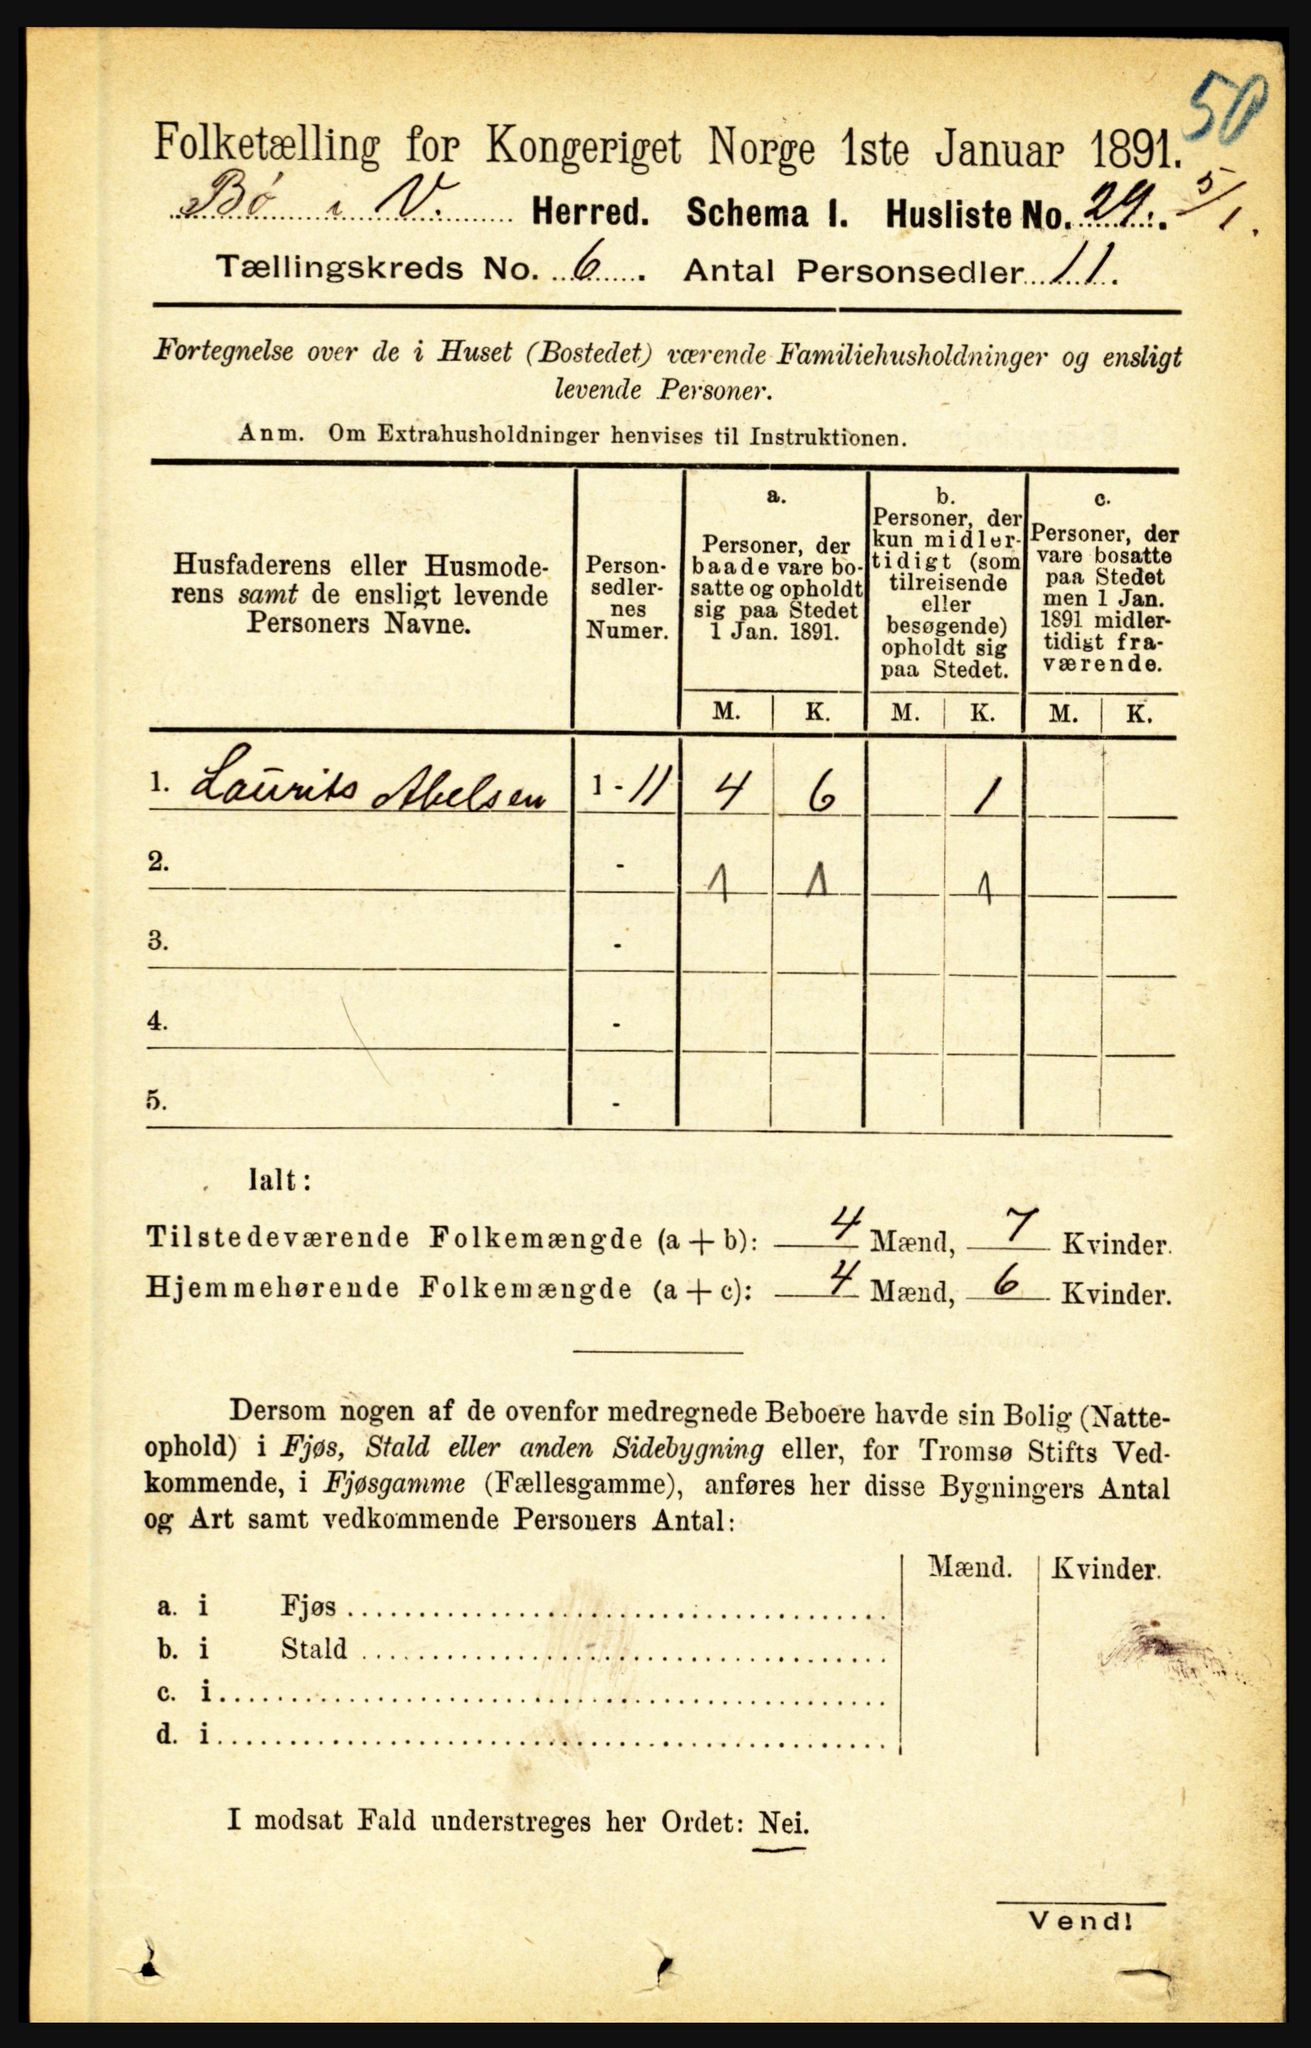 50
Folketælling for Kongeriget Norge 1ste Januar 1891.
Bø i V. Herred. Schema I. Husliste No. 29. 5/1.
Tællingskreds No. 6. Antal Personsedler 11.
Fortegnelse over de i Huset (Bostedet) værende Familiehusholdninger og ensligt
levende Personer.
Anm. Om Extrahusholdninger henvises til Instruktionen.
Husfaderens eller Husmode-
rens samt de ensligt levende
Personers Navne.
Person-
sedler-
nes
Numer.
a.
Personer, der
baade vare bo-
satte og opholdt
sig paa Stedet
1 Jan. 1891.
b.
Personer, der
kun midler-
tidigt (som
tilreisende
eller
besøgende)
opholdt sig
paa Stedet.
c.
Personer, der
vare bosatte
paa Stedet
men 1 Jan.
1891 midler-
tidigt fra-
værende.
M. K. M. K. M. K.
1. Laurits Abelsen 1 - 11 4 6 1
2. - 1 1 1
3. -
4. -
5. -
Ialt:
Tilstedeværende Folkemængde (a + b): 4 Mænd, 7 Kvinder.
Hjemmehørende Folkemængde (a + c): 4 Mænd, 6 Kvinder.
Dersom nogen af de ovenfor medregnede Beboere havde sin Bolig (Natte-
ophold) i Fjøs, Stald eller anden Sidebygning eller, for Tromsø Stifts Ved-
kommende, i Fjøsgamme (Fællesgamme), anføres her disse Bygningers Antal
og Art samt vedkommende Personers Antal:
Mænd. Kvinder.
a. i Fjøs
b. i Stald
c. i
d. i
I modsat Fald understreges her Ordet: Nei.
Vend!